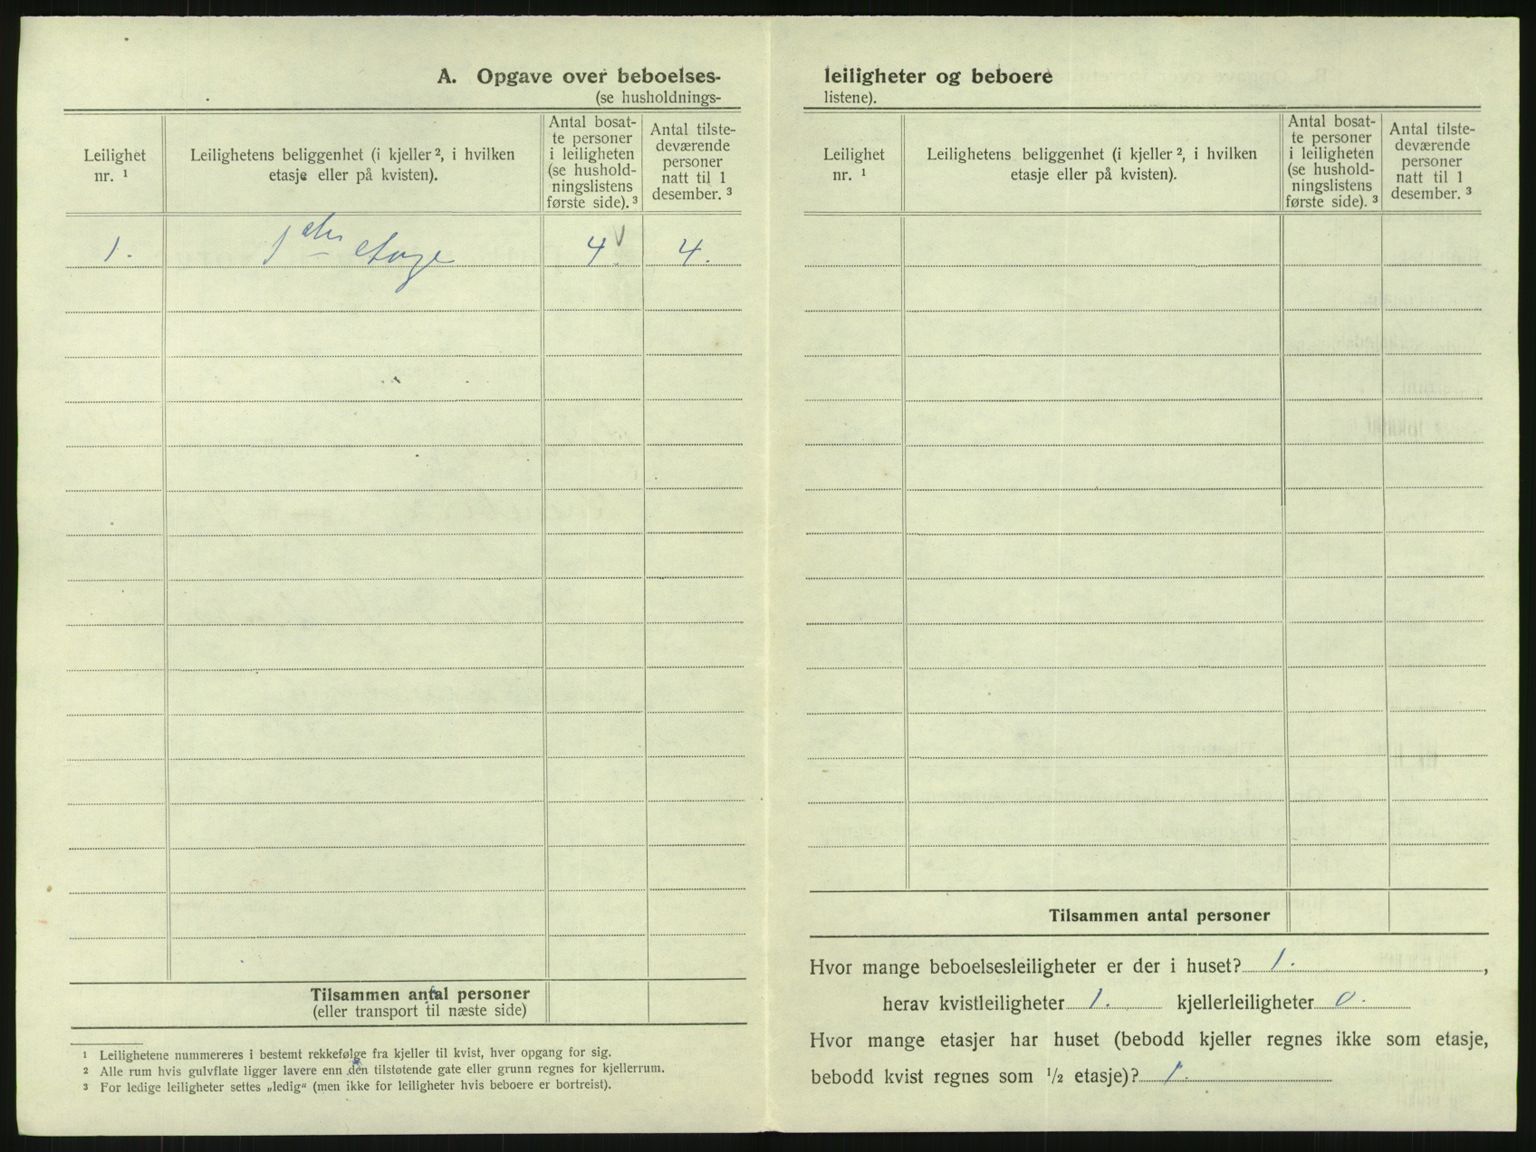 A. Opgave over beboelses-
(se husholdnings-
Leilighet nr. ¹
Leilighetens beliggenhet (i kjeller ², i hvilken etasje eller på kvisten).
Antal bosat-
te personer
i leiligheten
(se hushold-
ningslistens
første side). ³
Antal tilste-
deværende
personer
natt til 1
desember. ³
1. 1ste etage 4. 4.
Tilsammen antal personer
(eller transport til næste side)
¹ Leilighetene nummereres i bestemt rekkefølge fra kjeller til kvist, hver opgang for sig.
² Alle rum hvis gulvflate ligger lavere enn den tilstøtende gate eller grunn regnes for kjellerrum.
³ For ledige leiligheter settes „ledig“ (men ikke for leiligheter hvis beboere er bortreist).
leiligheter og beboere
listene).
Leilighet nr. ¹
Leilighetens beliggenhet (i kjeller ², i hvilken etasje eller på kvisten).
Antal bosat-
te personer
i leiligheten
(se hushold-
ningslistens
første side). ³
Antal tilste-
deværende
personer
natt til 1
desember. ³
Tilsammen antal personer
Hvor mange beboelsesleiligheter er der i huset? 1.,
herav kvistleiligheter 1. kjellerleiligheter 0.
Hvor mange etasjer har huset (bebodd kjeller regnes ikke som etasje,
bebodd kvist regnes som ½ etasje)? 1.